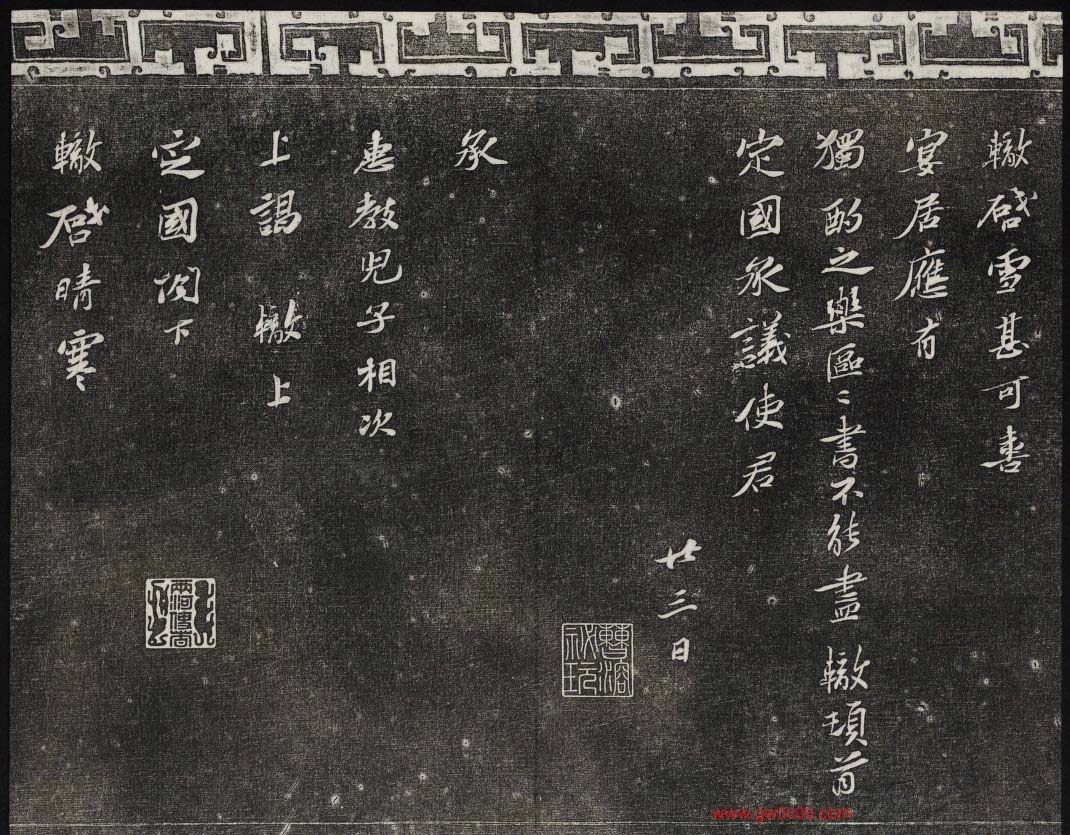 轍啓雪甚可喜
宴居應有
獨酌之樂區〻書不能盡 轍頓首
定國承議使君
廿三日
曹溶祕玩
承
惠教兒子相次
上謁 轍上
定國閣下
轍啓晴寒